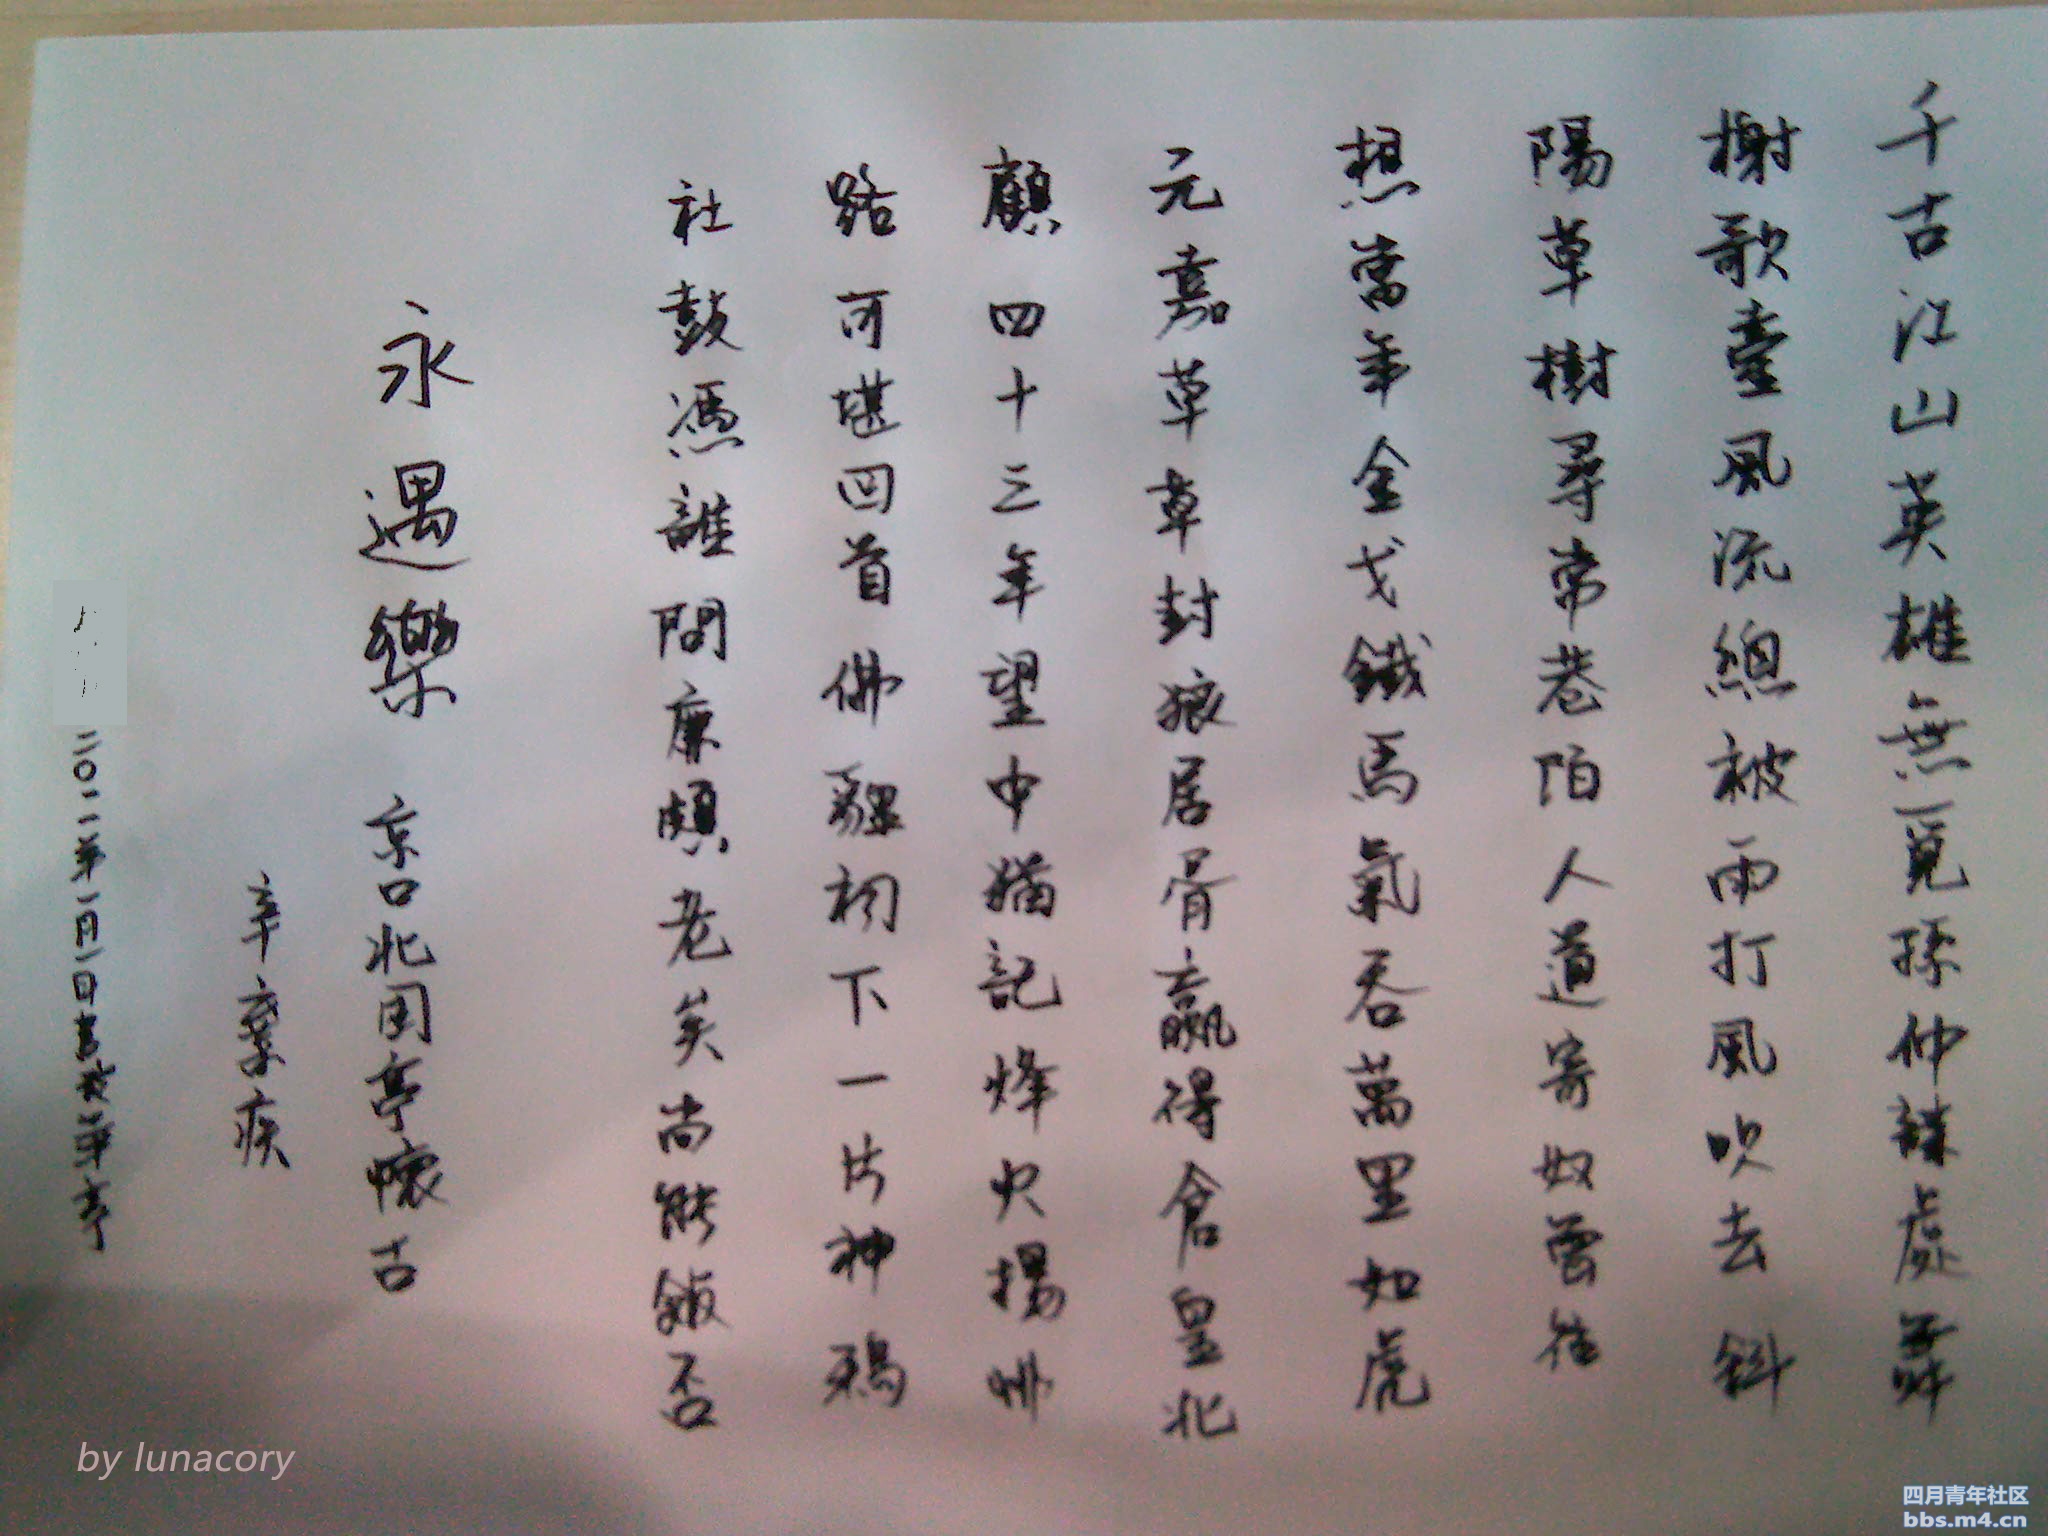 千古江山英雄無覓孫仲謀處舞
榭歌臺風流總被雨打風吹去斜
陽草樹尋常巷陌人道寄奴曾住
想當年金戈鐵馬氣吞萬里如虎
元嘉草草封狼居胥贏得倉皇北
顧四十三年望中猶記烽火揚州
路可堪回首佛貍祠下一片神鴉
社鼓憑誰問廉頗老矣尚能飯否
永遇樂 京口北固亭懷古
辛棄疾
二〇一一年一月一日書於華亭
by lunacory
四月青年社区
bbs.m4.cn